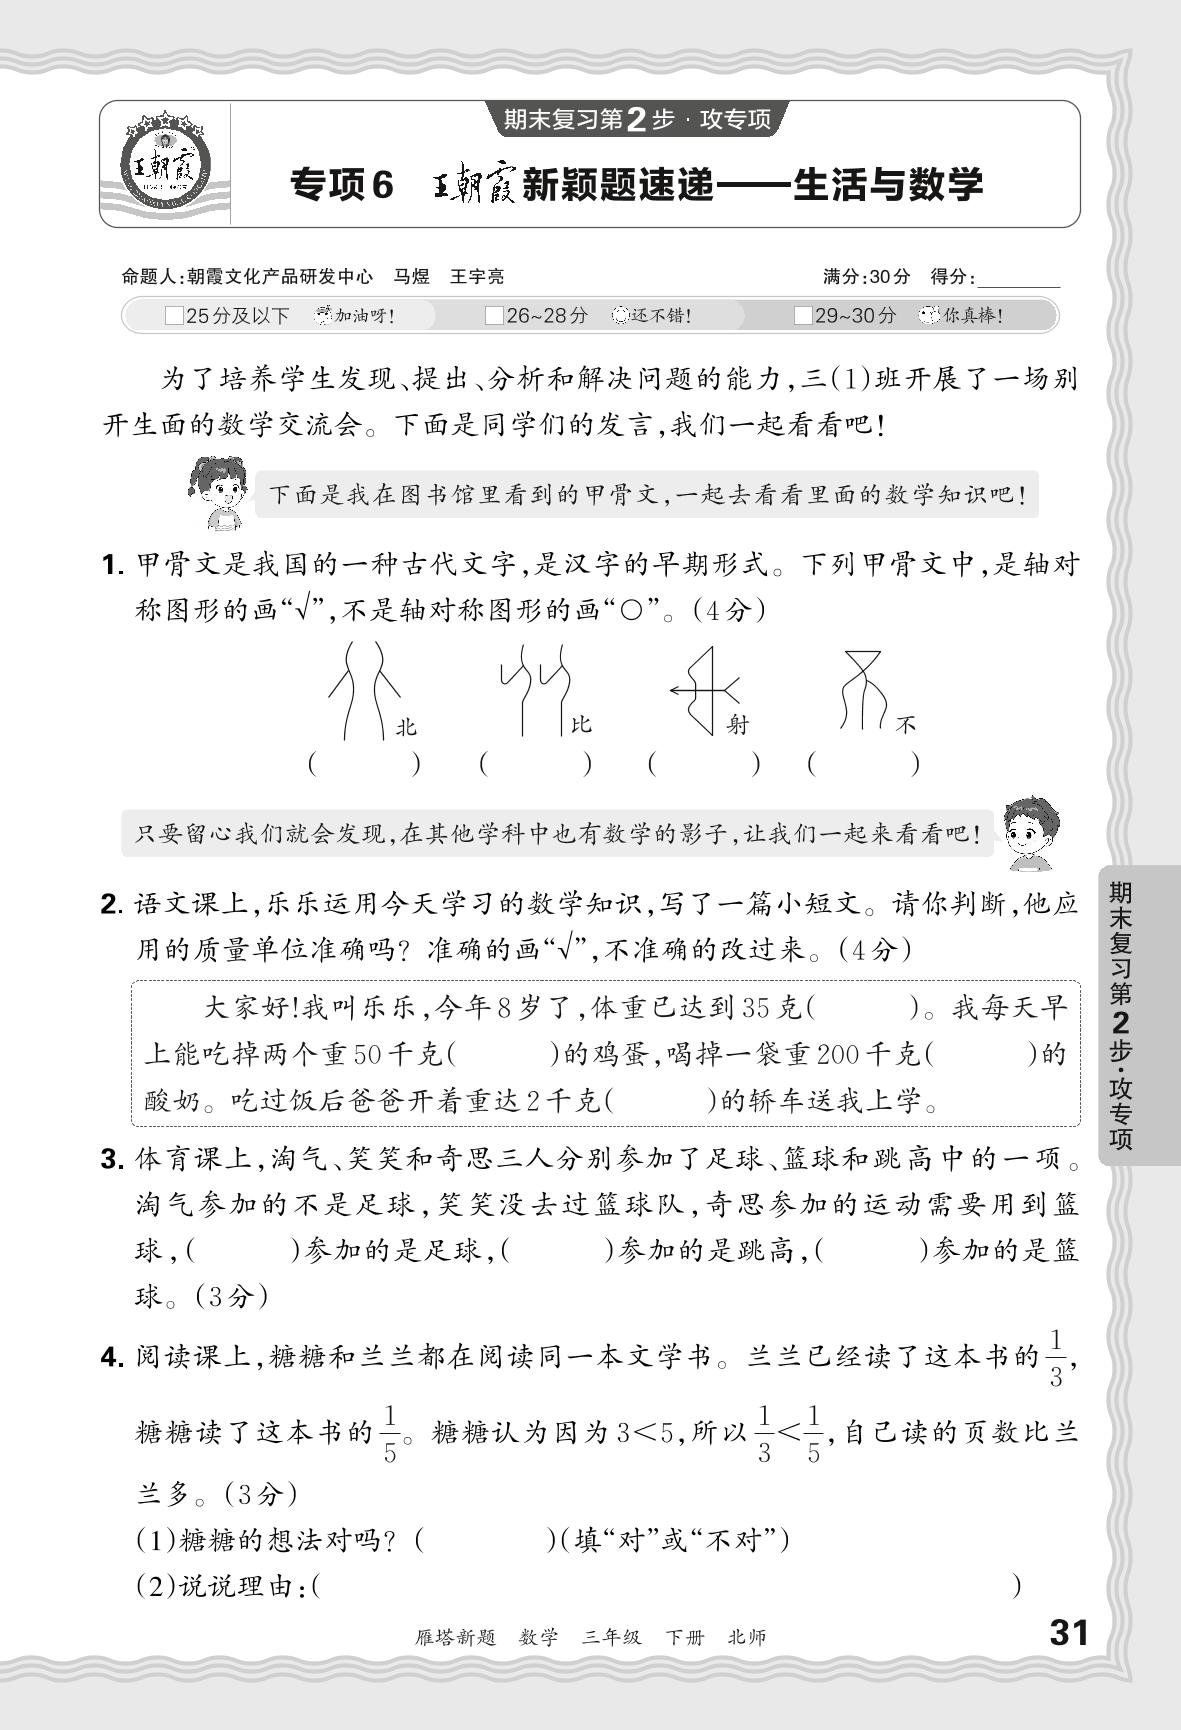 期末复习第2步·攻专项
王朝霞
专项6 王朝霞新颖题速递——生活与数学
命题人:朝霞文化产品研发中心 马煜 王宇亮 满分:30分 得分:________
□25分及以下 加油呀! □26~28分 还不错! □29~30分 你真棒!
为了培养学生发现、提出、分析和解决问题的能力,三(1)班开展了一场别
开生面的数学交流会。下面是同学们的发言,我们一起看看吧!
下面是我在图书馆里看到的甲骨文,一起去看看里面的数学知识吧!
1. 甲骨文是我国的一种古代文字,是汉字的早期形式。下列甲骨文中,是轴对
称图形的画“√”,不是轴对称图形的画“○”。(4分)
北 比 射 不
( ) ( ) ( ) ( )
只要留心我们就会发现,在其他学科中也有数学的影子,让我们一起来看看吧!
2. 语文课上,乐乐运用今天学习的数学知识,写了一篇小短文。请你判断,他应
用的质量单位准确吗?准确的画“√”,不准确的改过来。(4分)
大家好!我叫乐乐,今年8岁了,体重已达到35克( )。我每天早
上能吃掉两个重50千克( )的鸡蛋,喝掉一袋重200千克( )的
酸奶。吃过饭后爸爸开着重达2千克( )的轿车送我上学。
3. 体育课上,淘气、笑笑和奇思三人分别参加了足球、篮球和跳高中的一项。
淘气参加的不是足球,笑笑没去过篮球队,奇思参加的运动需要用到篮
球,( )参加的是足球,( )参加的是跳高,( )参加的是篮
球。(3分)
4. 阅读课上,糖糖和兰兰都在阅读同一本文学书。兰兰已经读了这本书的1/3,
糖糖读了这本书的1/5。糖糖认为因为3<5,所以1/3<1/5,自己读的页数比兰
兰多。(3分)
(1)糖糖的想法对吗?( )(填“对”或“不对”)
(2)说说理由:( )
期末复习第2步·攻专项
雁塔新题 数学 三年级 下册 北师
31